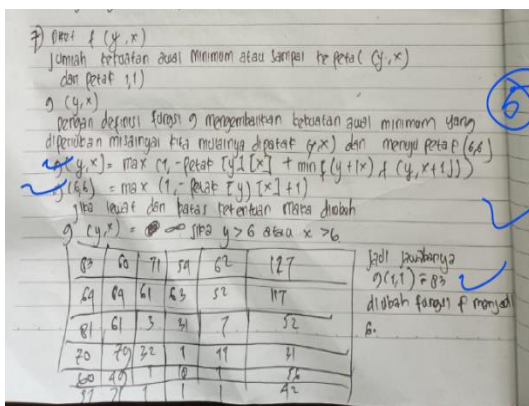 7) f (y,x)
jumlah kekuatan awal minimum atau sampai ke petak (y,x)
dari petak 1,1)
g (y,x)
Dengan definisi fungsi g mengembalikan kekuatan awal minimum yang
diperlukan misalnya kita mulainya dipetak (y,x) dan menuju petak (6,6)
g(y,x) = max (1, -petak [y][x] + min f(y+1x) f (y,x+1]))
g(6,6) = max (1, -petak [y] [x] +1)
jika lewat dari batas ketentuan maka diubah
g (y,x) = ∞ jika y>6 atau x>6
83 60 71 59 62 127
69 89 61 63 52 117
81 61 3 31 7 52
70 79 32 1 11 31
60 49 1 1
1 1 1 42
jadi jawabanya
g(1,1) = 83
diubah fungsi f menjadi
6.
6